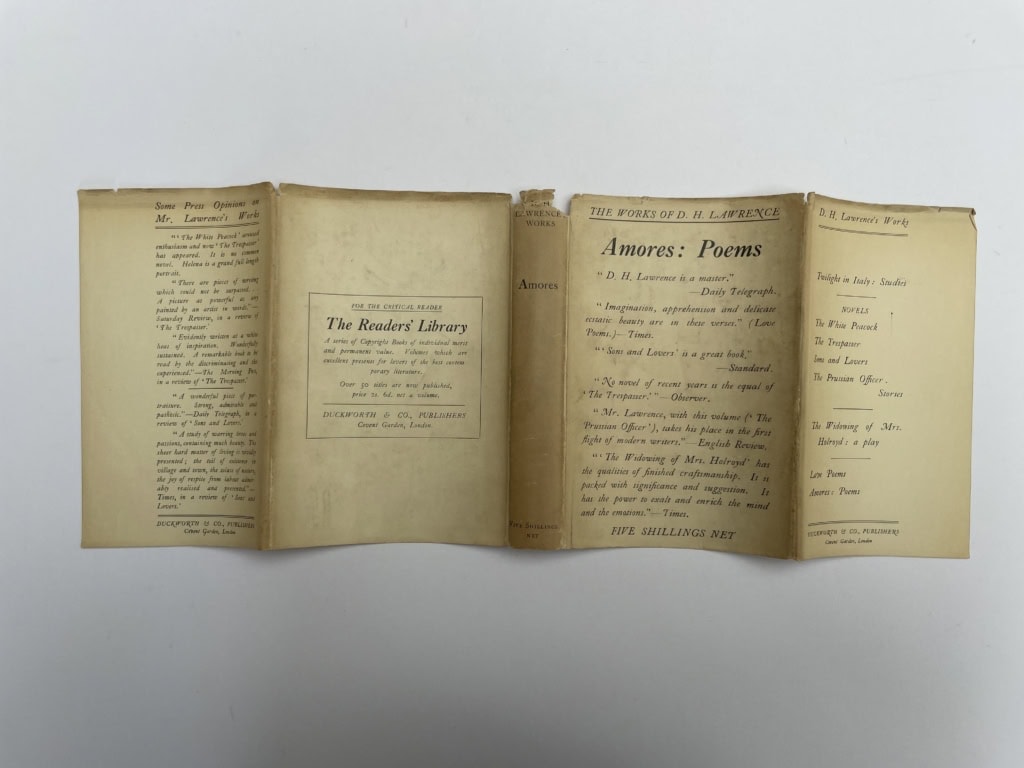 Some Press Opinions on
Mr. Lawrence's Works
"'The White Peacock' aroused
enthusiasm and now 'The Trespasser'
has appeared. It is no common
novel. Helena is a grand full length
portrait.
"There are pieces of writing
which could not be surpassed.
A picture as powerful as any
painted by an artist in words."—
Saturday Review, in a review of
'The Trespasser.'
"Evidently written at a white
heat of inspiration. Wonderfully
sustained. A remarkable book to be
read by the discriminating and the
experienced."—The Morning Post,
in a review of 'The Trespasser.'
"A wonderful piece of por-
traiture. Strong, admirable and
pathetic."—Daily Telegraph, in a
review of 'Sons and Lovers.'
"A study of warring loves and
passions, containing much beauty. The
sheer hard matter of living is vividly
presented; the toil of existence in
village and town, the solace of nature,
the joy of respite from labour admir-
ably realised and presented."—
Times, in a review of 'Sons and
Lovers.'
DUCKWORTH & CO., PUBLISHERS
Covent Garden, London
FOR THE CRITICAL READER
The Readers' Library
A series of Copyright Books of individual merit
and permanent value. Volumes which are
excellent presents for lovers of the best contem-
porary literature.
Over 50 titles are now published,
price 2s. 6d. net a volume.
DUCKWORTH & CO., PUBLISHERS
Covent Garden, London.
LAWRENCE
WORKS
Amores
FIVE SHILLINGS
NET
THE WORKS OF D. H. LAWRENCE
Amores: Poems
"D. H. Lawrence is a master."
—Daily Telegraph.
"Imagination, apprehension and delicate
ecstatic beauty are in these verses." (Love
Poems.)—Times.
"'Sons and Lovers' is a great book."
—Standard.
"No novel of recent years is the equal of
'The Trespasser.'"—Observer.
"Mr. Lawrence, with this volume ('The
Prussian Officer'), takes his place in the first
flight of modern writers."—English Review.
"'The Widowing of Mrs. Holroyd' has
the qualities of finished craftsmanship. It is
packed with significance and suggestion. It
has the power to exalt and enrich the mind
and the emotions."—Times.
FIVE SHILLINGS NET
D. H. Lawrence's Works
Twilight in Italy: Studies
NOVELS
The White Peacock
The Trespasser
Sons and Lovers
The Prussian Officer.
Stories
The Widowing of Mrs.
Holroyd: a play
Love Poems
Amores: Poems
DUCKWORTH & CO., PUBLISHERS
Covent Garden, London